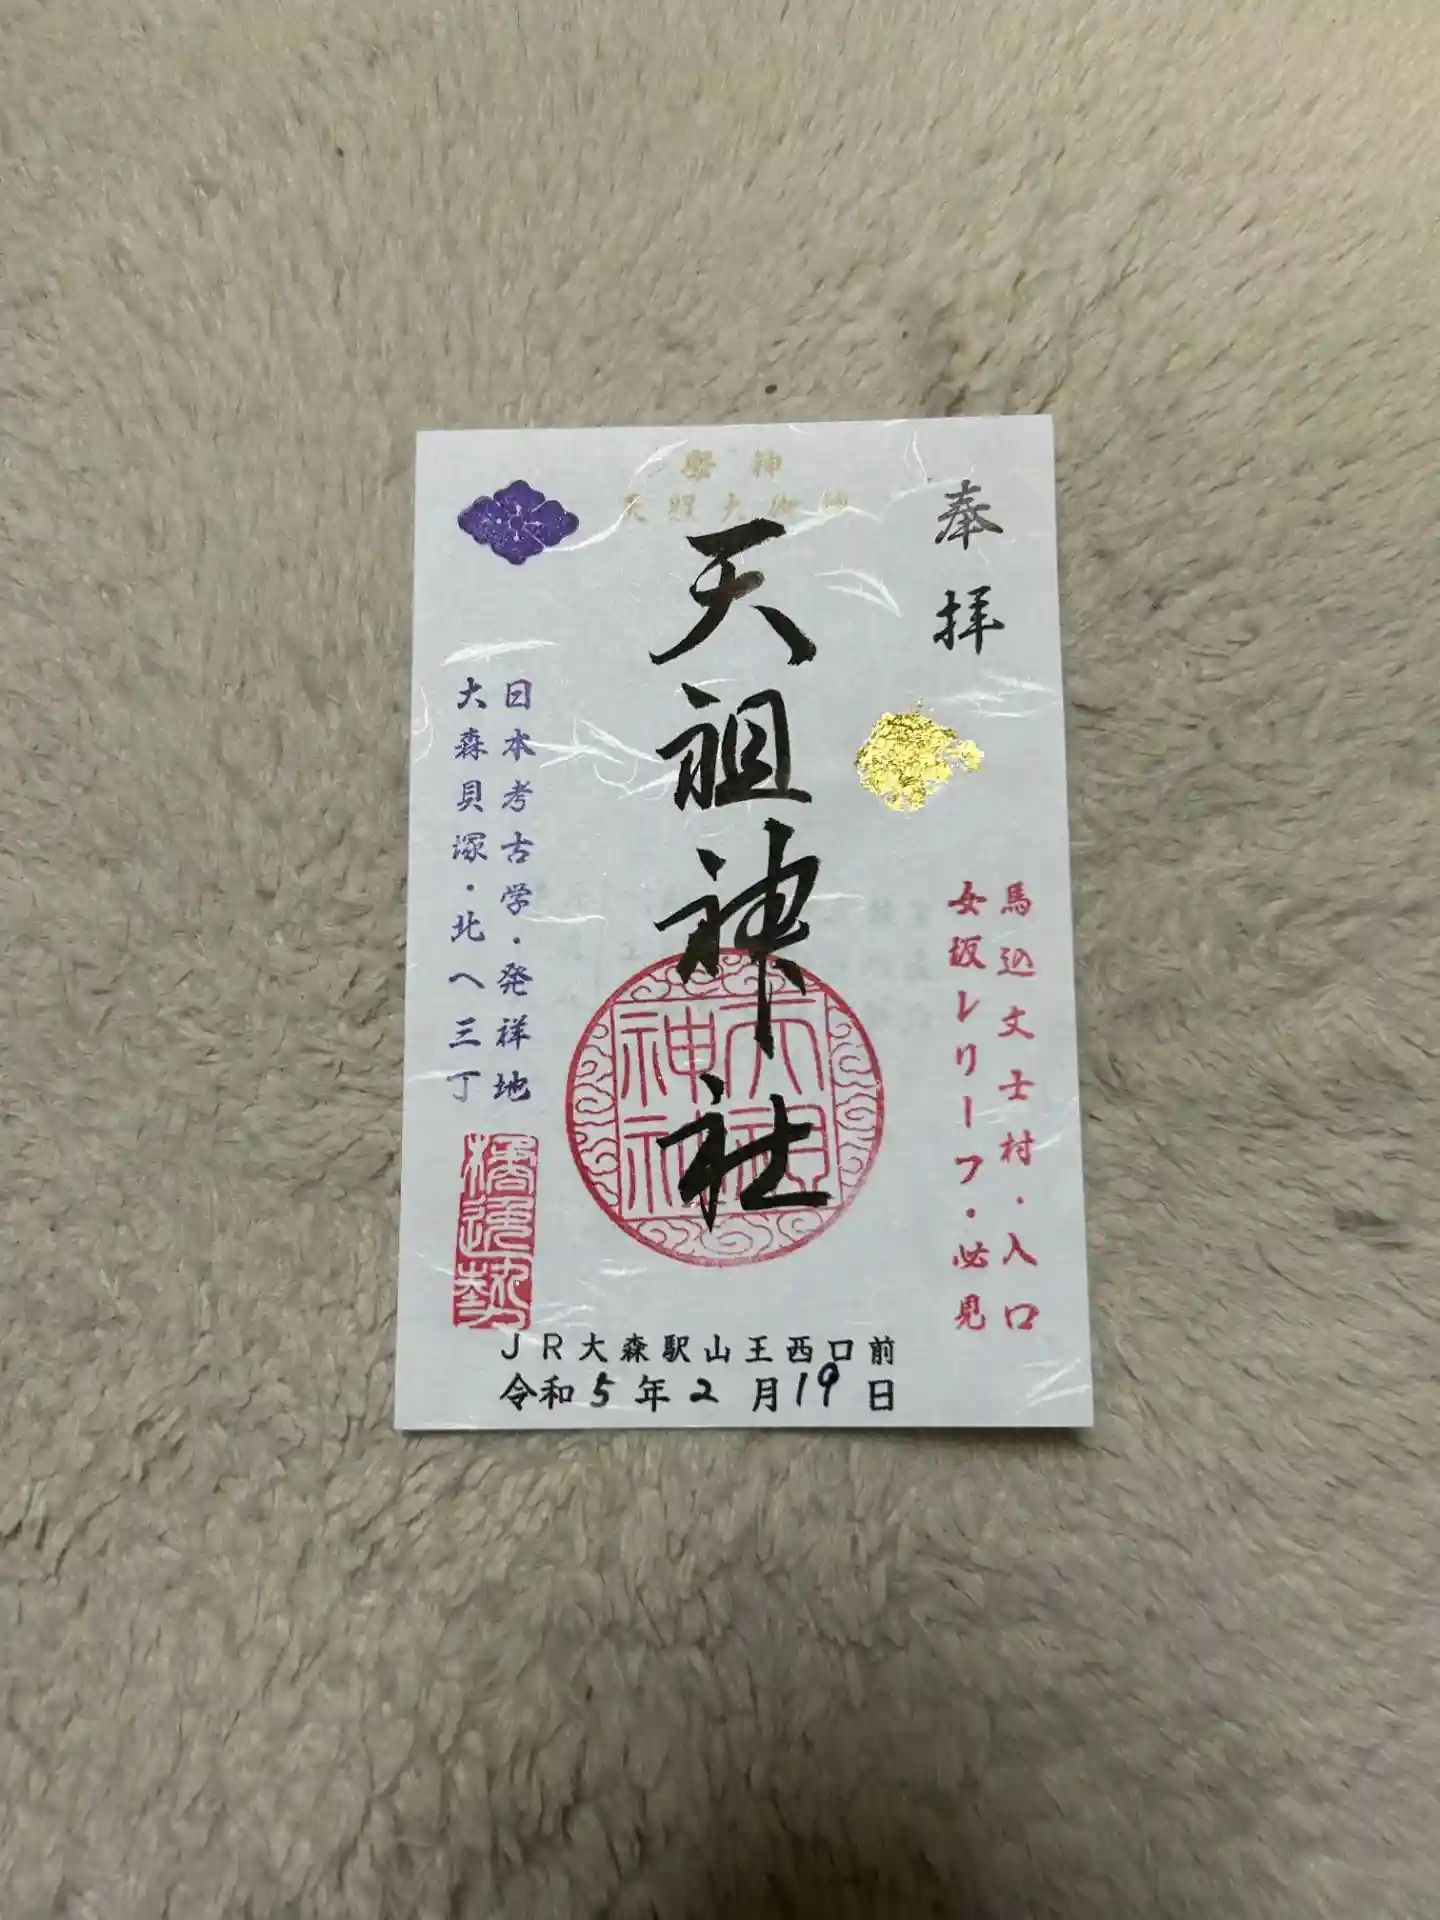 奉拝
馬込文士村・入口
女坂レリーフ・必見
神
天照大御神
天祖神社
天祖
神社
日本考古学・発祥地
大森貝塚・北へ三丁
JR大森駅山王西口前
令和5年2月19日